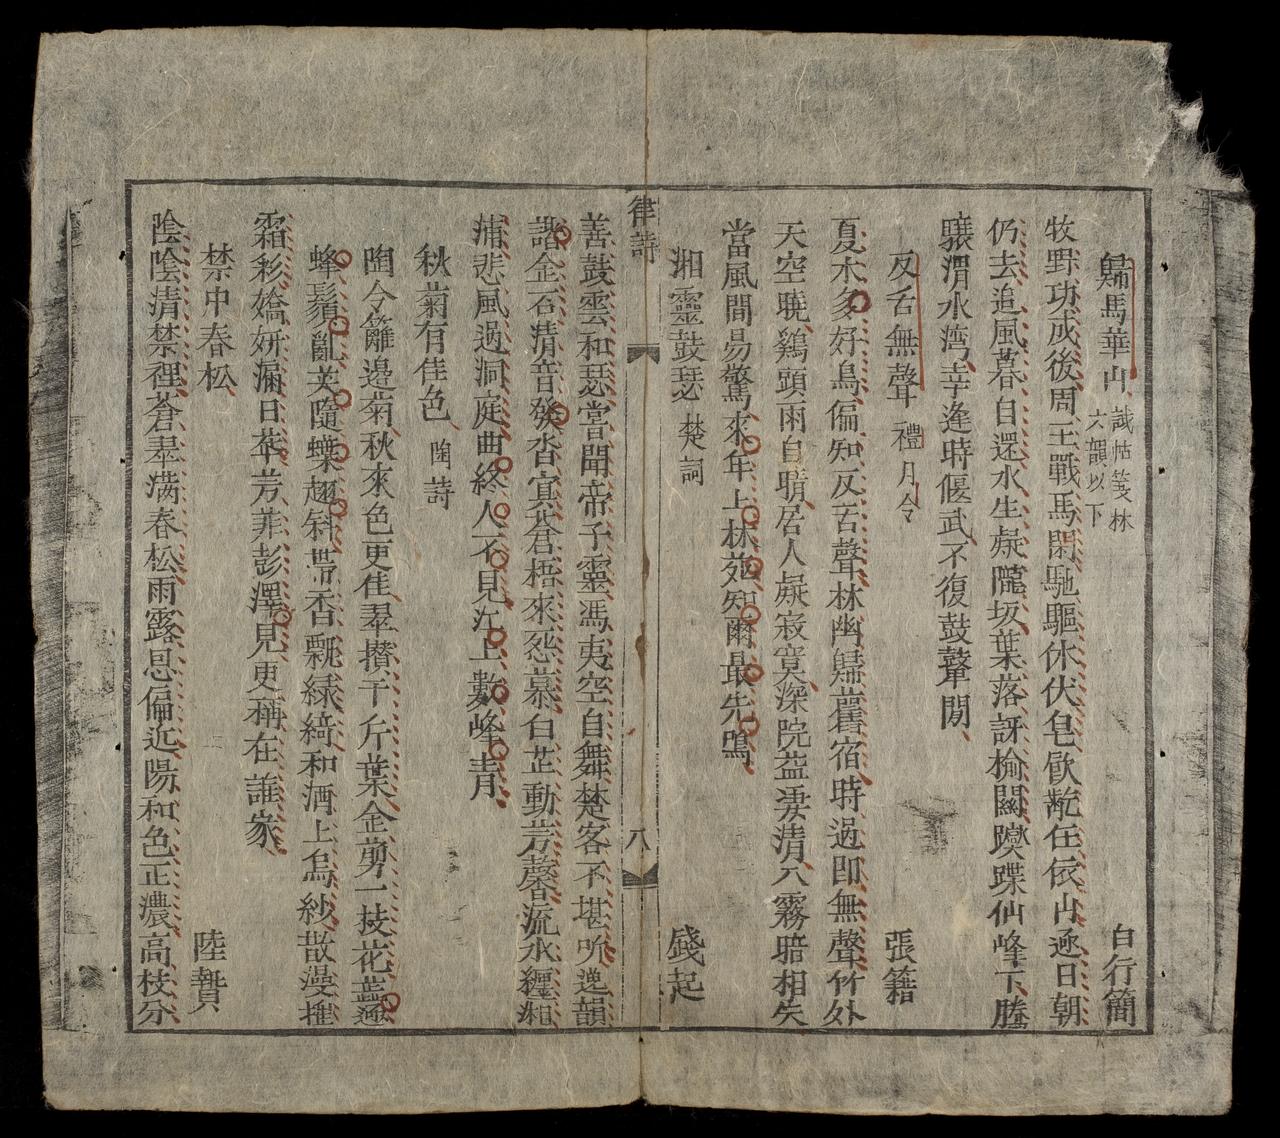 歸馬華山 試帖箋林六韻以下 白行簡
牧野功成後周王戰馬閑驅馳休伏皁飲齕任依山逐日朝
仍去追風暮自還水生疑隴坂葉落訝榆關躞蹀仙峰下騰
驤渭水湾幸逢時偃武不復鼓鼙間
反舌無聲 禮月令 張籍
夏木多好鳥偏知反舌聲林幽歸舊宿時過即無聲竹外
天空曉谿頭雨自晴居人疑寂寞深院益淒清入霧暗相失
當風間易驚來年上林苑知爾最先鳴
湘靈鼓瑟 楚詞 錢起
律詩 八
善鼓雲和瑟嘗聞帝子靈馮夷空自舞楚客不堪听逸韻
諧金石清音發杳冥蒼梧來怨慕白芷動芳馨流水纏湘
浦悲風過洞庭曲終人不見江上數峰青
秋菊有佳色 陶詩
陶令籬邊菊秋來色更佳羣攅千斤葉金剪一枝花蕊逐
蜂鬚亂英隨蝶翅斜帯香飄綠綺和酒上烏紗散漫摧
霜彩嬌妍漏日華芳菲彭澤見更稱在誰家
禁中春松 陸贄
陰陰清禁裡蒼翠满春松雨露恩偏近陽和色正濃高枝分